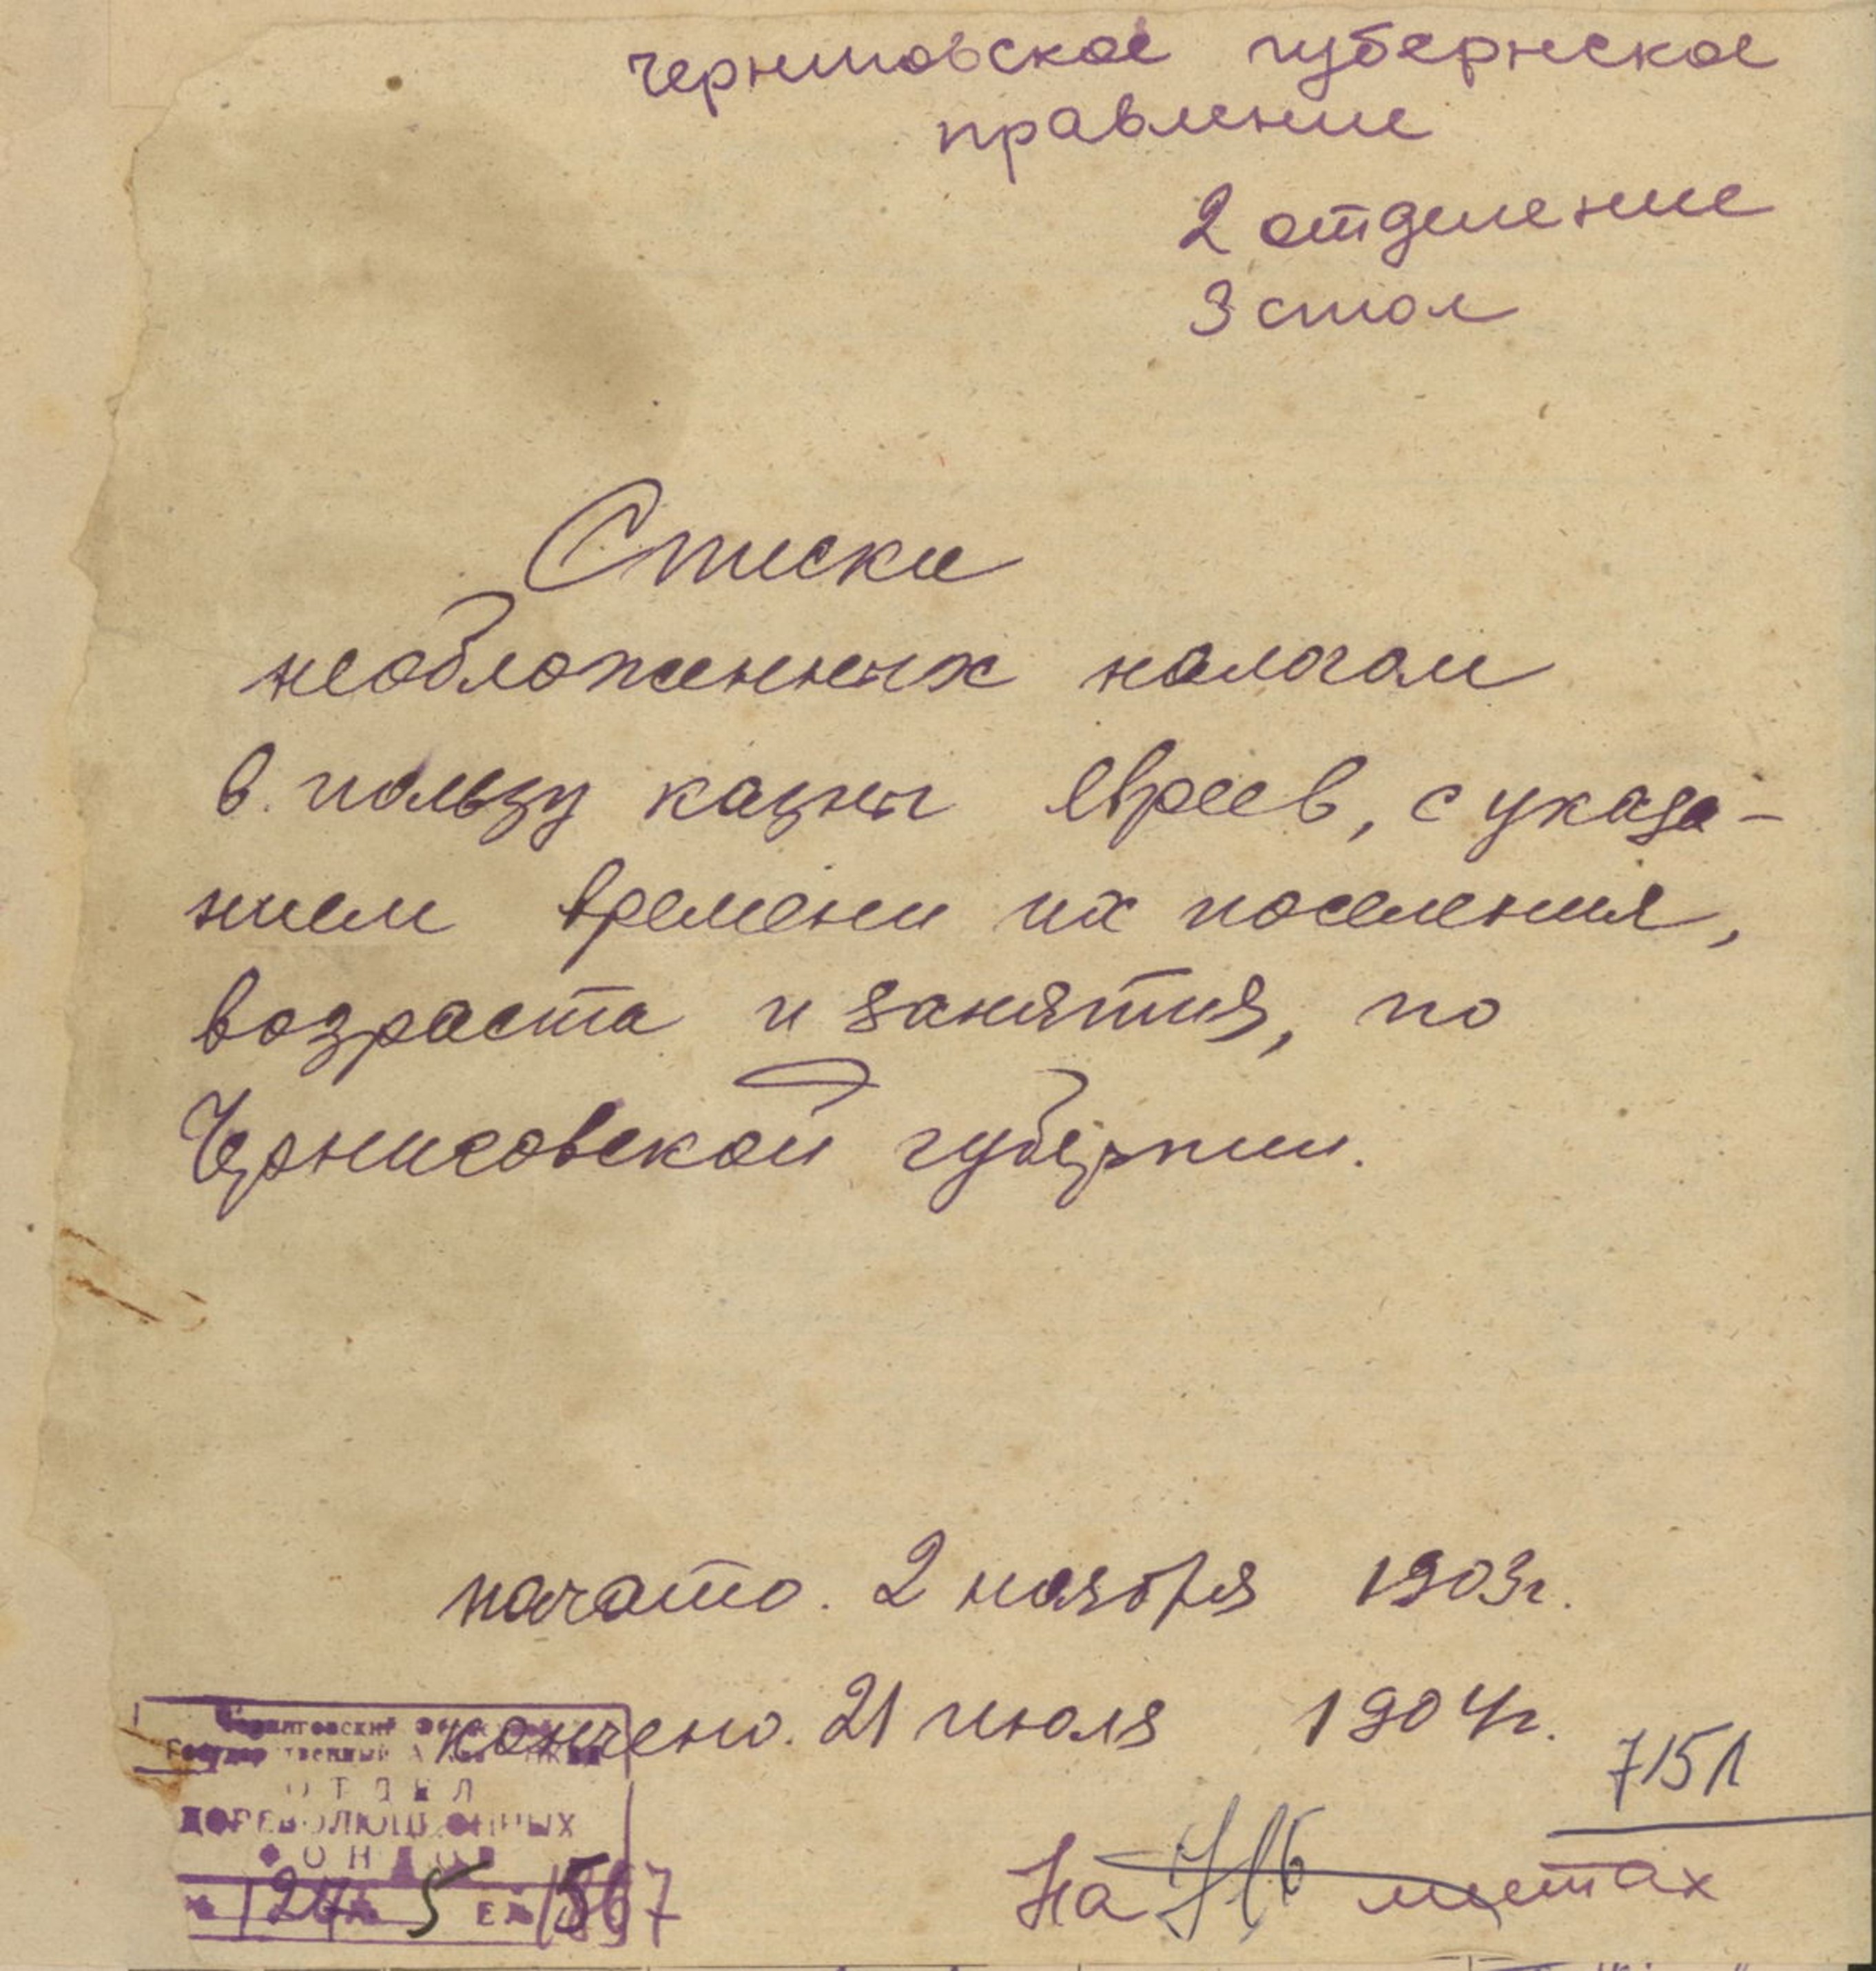 Черниговское губернское
правление
2 отделение
3 стол
Списки
необложенных налогом
в пользу казны евреев, с указа-
нием времени их поселения,
возраста и занятия, по
Черниговской губернии.
начато. 2 ноября 1903г.
кончено. 21 июля 1904г.
Черниговский
Государственный
ОТДЕЛ
ДОРЕВОЛЮЦИОННЫХ
ФОНДОВ
5
715л
На листах